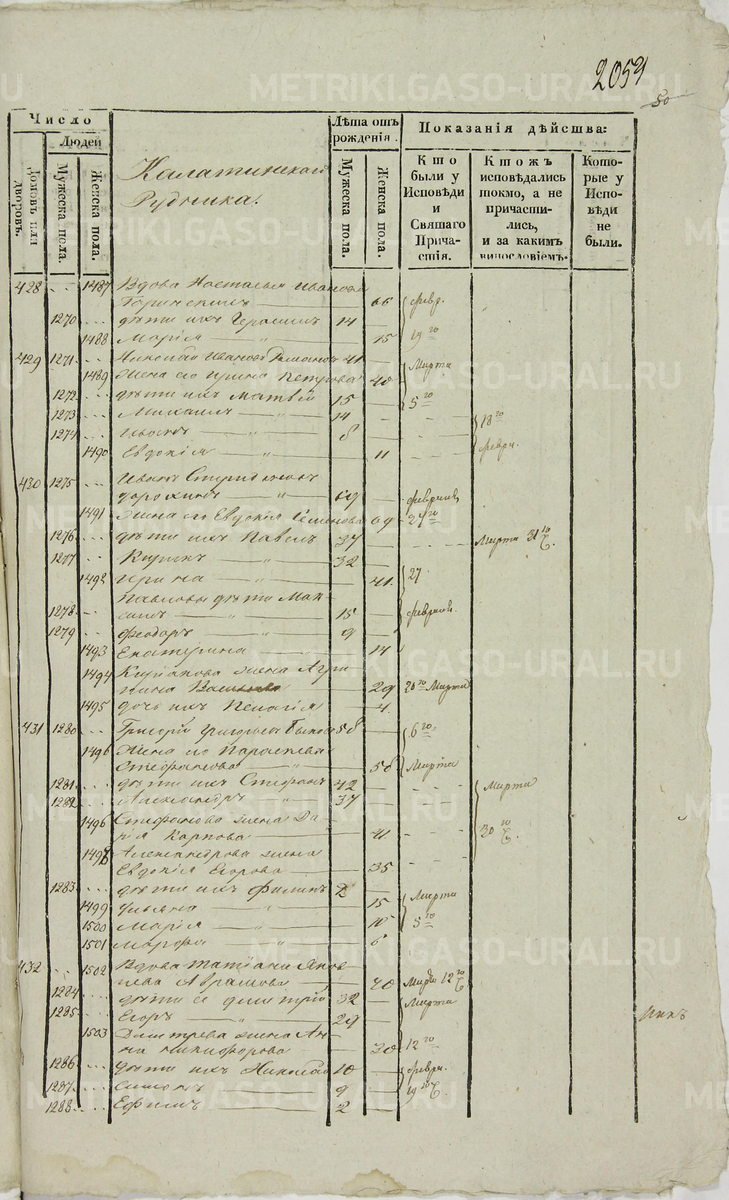 2059
50
Число
Людей
Домовъ или дворовъ.
Мужеска пола.
Женска пола.
Калатинскаго
Рудника.
Лѣта отъ рожденія.
Мужеска пола.
Женска пола.
Показанія дѣйства:
Кто были у Исповѣди и Святаго Причастія.
Ктожъ исповѣдались токмо, а не причастились, и за какимъ винословіемъ.
Которые у Исповѣди не были.
428 1487 Вдова Настасья Иванова
66 февр.
1270 дѣти ихъ Герасимъ 14
1488 Марія 15 19го
429 1271 Иванов 41
1489 жена его Ирина Петрова 40 Марта
1272 дѣти ихъ Матвѣй 15 5го
1273 Михаилъ 14 18го
1274 Иванъ 8
1490 Евдокія 11 февр.
430 1275 Иванъ
69 февраля
1491 жена его Евдокія Семенова 69 27го
1276 дѣти ихъ Павелъ 37 Марта 31го
1277 32
1492 Ирина 41 27
Павловы дѣти Мак-
1278 симъ 15 февраля
1279 Феодоръ 9
1493 Екатерина 14
1494 жена Агри-
пина Васильева 29 20го Марта
1495 дочь ихъ Пелагія 4
431 1280 Григорій Григорьевъ 58 6го
1496 жена его Параскева
Стефанова 58 Марта
1281 дѣти ихъ Стефанъ 42 Марта
1282 Александръ 37
1496 Стефанова жена Да-
рія Карпова 41 30го
1498 Александрова жена
Евдокія Егорова 35
1283 дѣти ихъ Филипъ 2
1499 Ульяна 15 Марта
1500 Марія 10 5го
1501 Марфа 6
432 1502 Вдова Татіана Яков-
лева 70 12го
1284 дѣти ее Дмитрій 32 Марта
1285 Егоръ 29
1503 Дмитрева жена Ан-
на Никифорова 30 12го
1286 дѣти ихъ Николай 10 февр.
1287 Симонъ 9 19го
1288 Ефимъ 2
METRIKI.GASO-URAL.RU